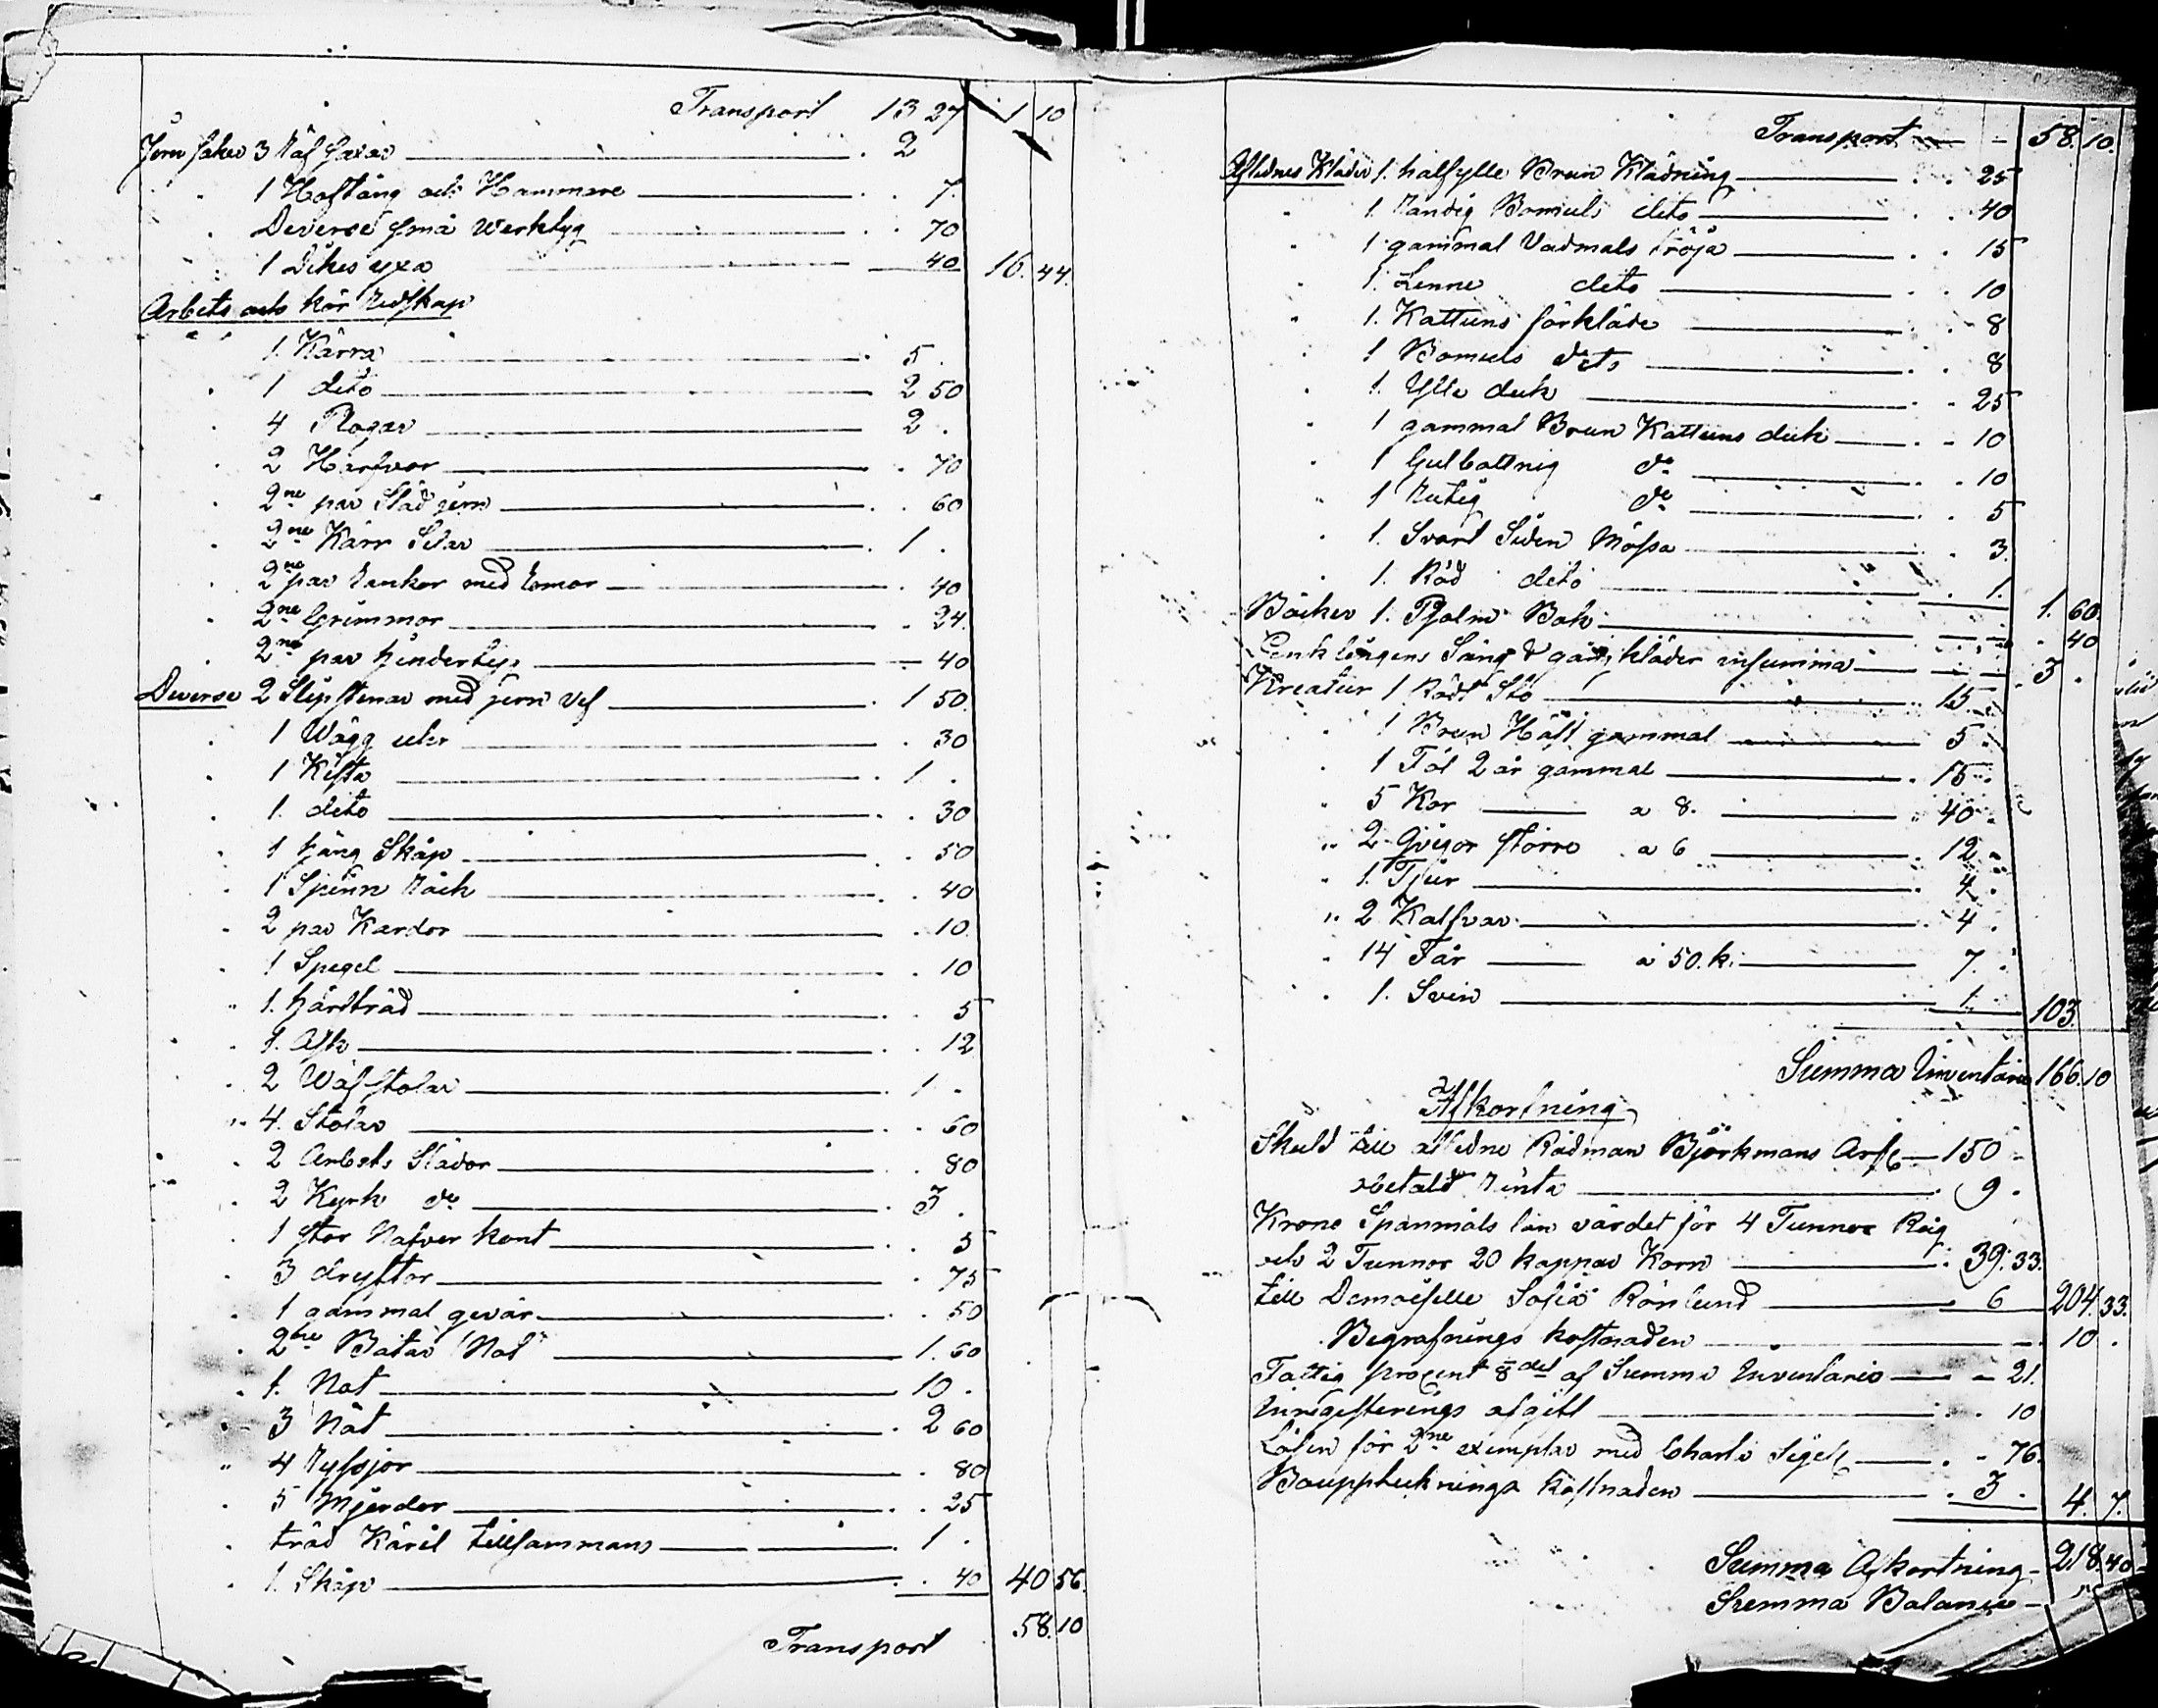 Transport 13 27 1 10
Jern saker 3 Råf saxar 2
1 Hoftång och Hammare 7
Diverse små werktyg 70
1 Dikes yxa 40 16. 44.
Arbets och kör Redskap
1. Kärra 5.
1 dito 2 50
4 Plogar 2.
2 Harfvor 70
2ne par Släd jern 60
2ne Kärr Selar 1.
2ne par Rankor med tömor 40
2ne Grimmor 24.
2ne par hinderlys 40
Diverse 2 Slipstenar med jern vef 1 50.
1 Wägg uhr 30
1 Kista 1.
1. dito 30
1 häng Skåp 50
1 Spinn Råck 40
2 par Kardor 10.
1 Spegel 10
1. hårdträd 5
1. Ask 12
2 Wäfstolar 1.
4. Stolar 60
2 Arbets Slädor 80
2 Kyrk do 3.
1 stor Näfver kont 5
3 dryftor 75
1 gammal gevär 50
2ne Båtar Not 1. 60
1. Not 10.
3 Nät 2 60
4 Ryssjor 80
5 Mjerdor 25
träd Käril tillsammans 1.
1. Skåp 40 40 56.
Transport 58. 10
Transport 58. 10.
Aflednes Kläder 1. halfylle Brun Klädning 25
1. Randig Bomuls dito 40
1 gammal Vadmals tröja 15
1. Linne dito 10
1. Kattuns förkläde 8
1 Bomuls dito 8
1. Ylle duk 25
1 gammal Brun Kattuns duk 10
1 Gulbottnig do 10
1 Rutig do 5
1. Svart Siden Mössa 3.
1. Röd dito 1. 1. 60.
Böcker 1. Psalm Bok 40
Enklingens Säng & gång kläder in summa 3.
Kreatur 1 Rödt Sto 15.
1 Brun Häst gammal 5.
1 Föl 2 år gammal 15.
5 Kor a 8. 40.
2 Qvigor större a 6 12.
1. Tjur 4.
2 Kalfvar 4.
14 Får a 50. k. 7.
1. Svin 1. 103.
Summa Inventario 166. 10
Afkortning
Skuld till aflidne Rådman Björkmans Arf 150
obetald Ränta 9.
Krono Spanmåls lån värdet för 4 Tunnor Råg
och 2 Tunnor 20 kappar Korn 39. 33.
till Demoiselle Sofia Rönlund 6 204. 33.
Begrafnings kostnaden 10.
Fattig procent 8del af Summa Inventario 21.
Inregisterings afgift 10
Lösen för 2ne exemplar med Charta Sigil 76.
Bouppteknings Kostnaden 3. 4. 7.
Summa Afkortning 218. 40
Summa Balance